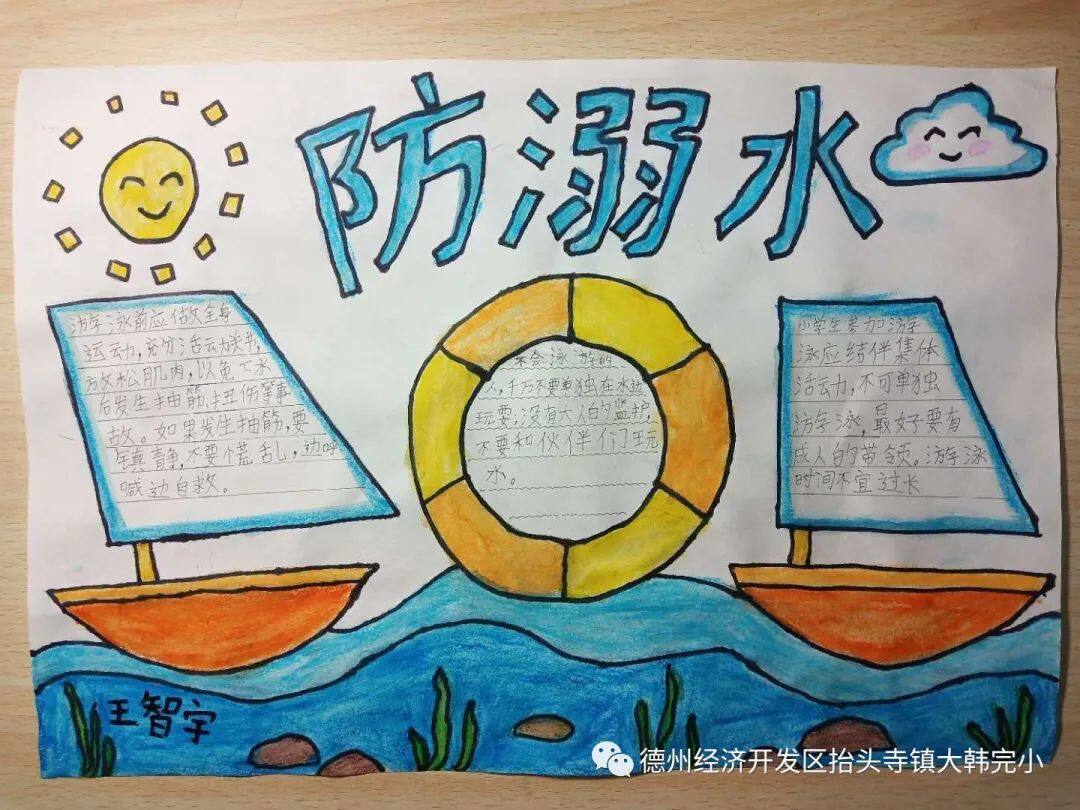 防溺水
游泳前应做全身
运动,充分活动关节,
放松肌肉,以免下水
后发生抽筋、扭伤等事
故。如果发生抽筋,要
镇静,不要慌乱,边呼
喊边自救。
不会泳游的
人,千万不要单独在水边
玩耍,没有大人的监护,
不要和伙伴们玩
水。
小学生参加游
泳应结伴集体
活动,不可单独
游泳,最好要有
成人的带领。游泳
时间不宜过长
王智宇
德州经济开发区抬头寺镇大韩完小